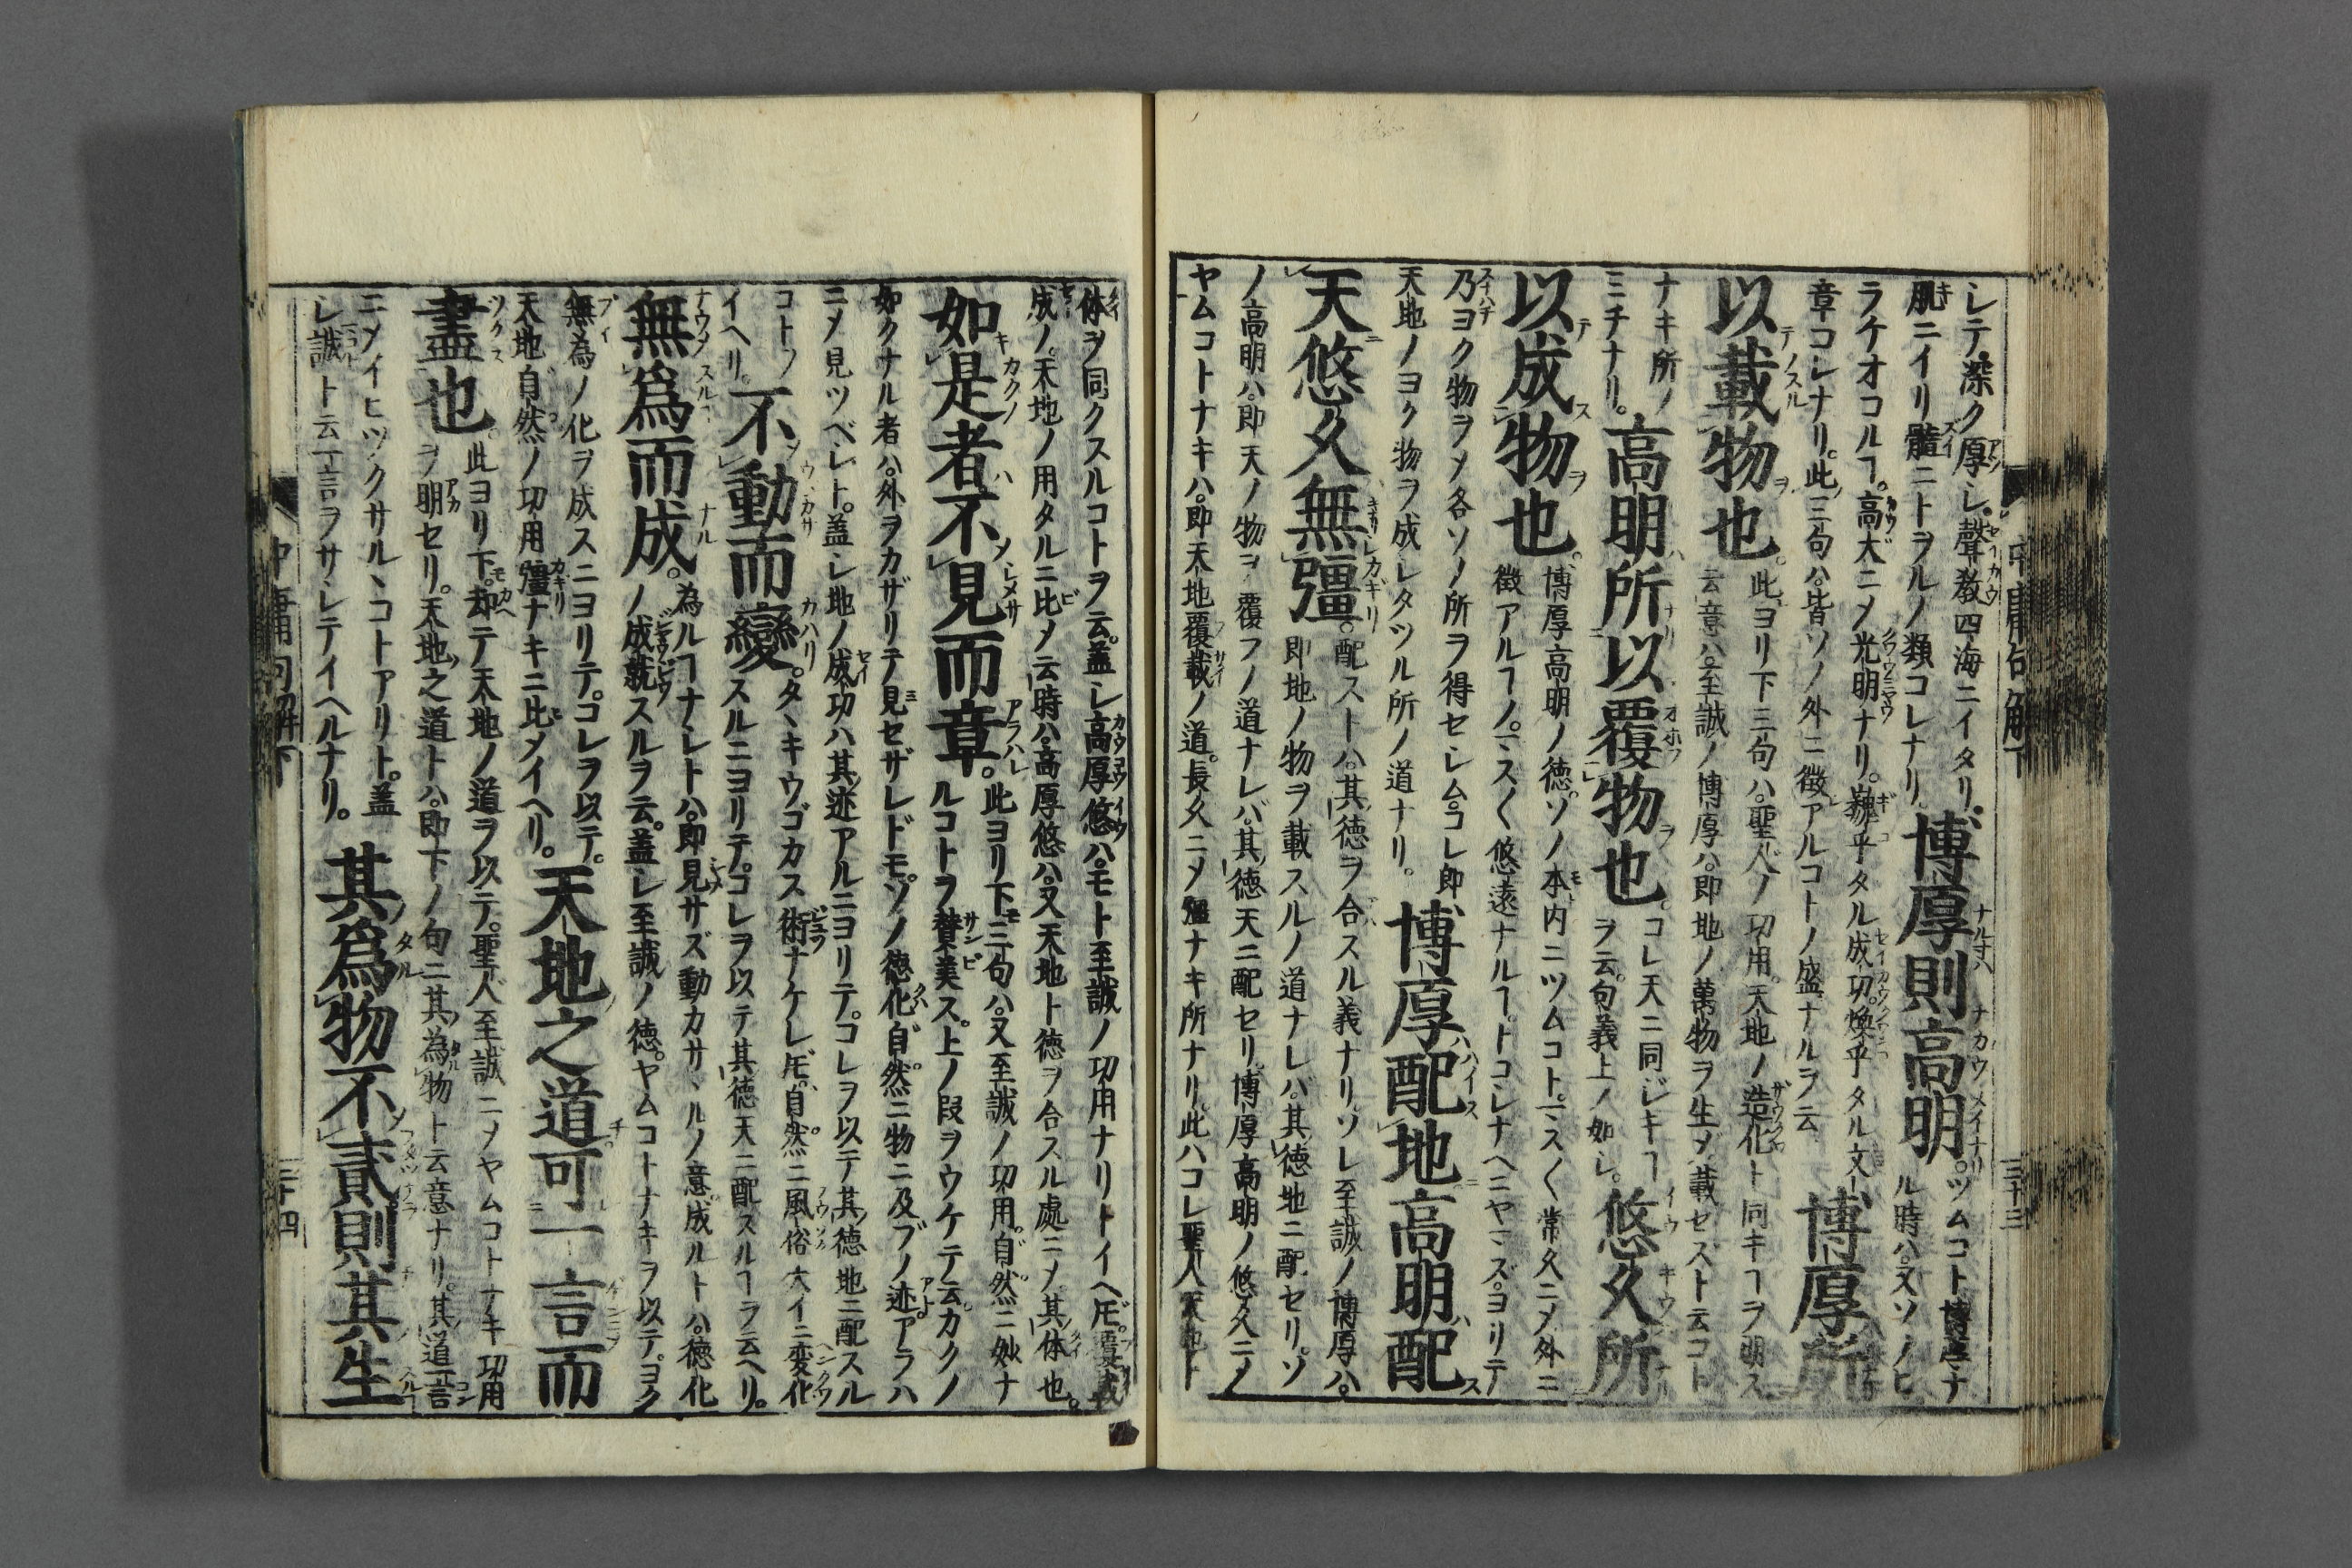 シテ深ク厚シ。聲教四海ニイタリ。
肌ニイリ髓ニトヲルノ類コレナリ
博厚則高明。
ツムコト博厚ナ
ル時ハ。又ソノヒ
ラケオコルヿ。高大ニメ光明ナリ。巍乎タル成功。煥乎タル文
章コレナリ。此三句ハ。皆ソノ外ニ徴アルコトノ盛ナルヲ云
博厚所
以載物也。
此ヨリ下三句ハ。聖人ノ功用。天地ノ造化ト同キヿヲ明ス
云意ハ。至誠ノ博厚ハ。即地ノ萬物ヲ生メ載セズト云コト
ナキ所ノ
ミチナリ。
高明所以覆物也。
コレ天ニ同ジキヿ
ヲ云。句義上ノ如シ。
悠久所
以成物也。
博厚高明ノ徳。ソノ本内ニツムコト。マスく常久ニメ外ニ
徴アルヿノ。マスく悠遠ナルヿトコレナヘニヤマズ。ヨリテ
乃ヨク物ヲメ各ソノ所ヲ得セシム。コレ即
天地ノヨク物ヲ成シタツル所ノ道ナリ。
博厚配地高明配
天悠久無彊。
配ストハ。其徳ヲ合スル義ナリ。ソレ至誠ノ博厚ハ。
即地ノ物ヲ載スルノ道ナレバ。其徳地ニ配セリ。ソ
ノ高明ハ。即天ノ物ヲ覆フノ道ナレバ。其徳天ニ配セリ。博厚高明ノ悠久ニメ
ヤムコトナキハ。即天地覆載ノ道。長久ニメ彊ナキ所ナリ。此ハコレ聖人天地ト
中庸句解下
三十三
体ヲ同クスルコトヲ云。蓋シ高厚悠ハ。モト至誠ノ功用ナリトイヘ𪜈。覆載
成ノ。天地ノ用タルニ比メ云時ハ。高厚悠ハ。又天地ト徳ヲ合スル處ニメ。其体也。
如是者不見而章。
此ヨリ下三句ハ。又至誠ノ功用。自然ニ妙ナ
ルコトヲ賛美ス。上ノ段ヲウケテ云。カクノ
如クナル者ハ。外ヲカザリテ見セザレドモ。ソノ徳化自然ニ物ニ及ブノ迹。アラハ
ニメ見ツベシト。蓋シ地ノ成功ハ其迹アルニヨリテ。コレヲ以テ其徳地ニ配スル
コトノ
イヘリ。
不動而變。
タヽキウゴカス術ナケレ𪜈。自然ニ風俗大イニ変化
スルニヨリテ。コレヲ以テ其徳天ニ配スルヿヲ云ヘリ。
無爲而成。
為ルヿナシトハ。即見サズ動カサヽルノ意。成ルトハ。徳化
ノ成就スルヲ云。蓋シ至誠ノ徳。ヤムコトナキヲ以テ。ヨク
無為ノ化ヲ成スニヨリテ。コレヲ以テ。
天地自然ノ功用彊ナキニ比メイヘリ。
天地之道可一言而
盡也。
此ヨリ下。却テ天地ノ道ヲ以テ。聖人至誠ニメヤムコトナキ功用
ヲ明セリ。天地之道トハ。即下ノ句ニ其為物ト云意ナリ。其道一言
ニメイヒツクサルヽコトアリト。蓋
シ誠ト云一言ヲサシテイヘルナリ。
其爲物不貳則其生
中庸句解下
三十四